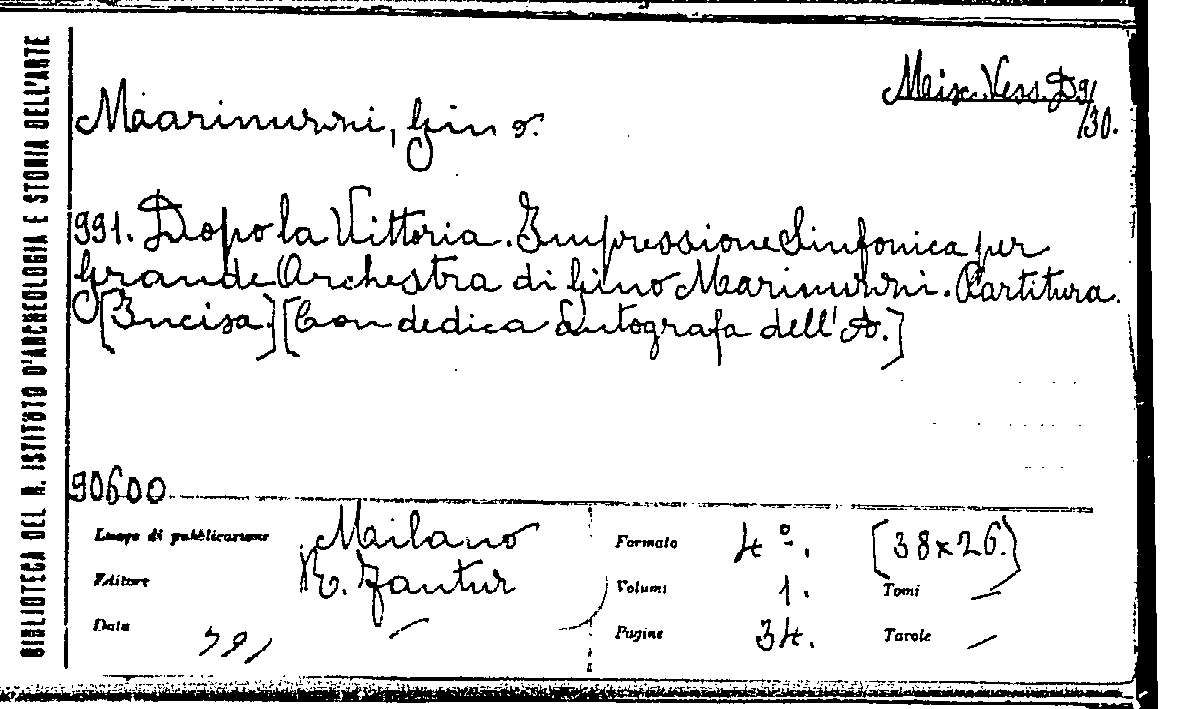 BIBLIOTECA DEL R. ISTITUTO D'ARCHEOLOGIA E STORIA DELL'ARTE
Misc. Vess. D9/
/30.
Marinuzzi, Gino.
991. Dopo la Vittoria. Impressione Sinfonica per
Grande Orchestra di Gino Marinuzzi. Partitura.
[Incisa.] [Con dedica autografa dell'A.]
90600
Luogo di pubblicazione Milano
Formato 4º. [38x26.]
Editore
Volumi 1. Tomi —
Data —
Pagine 34. Tavole —